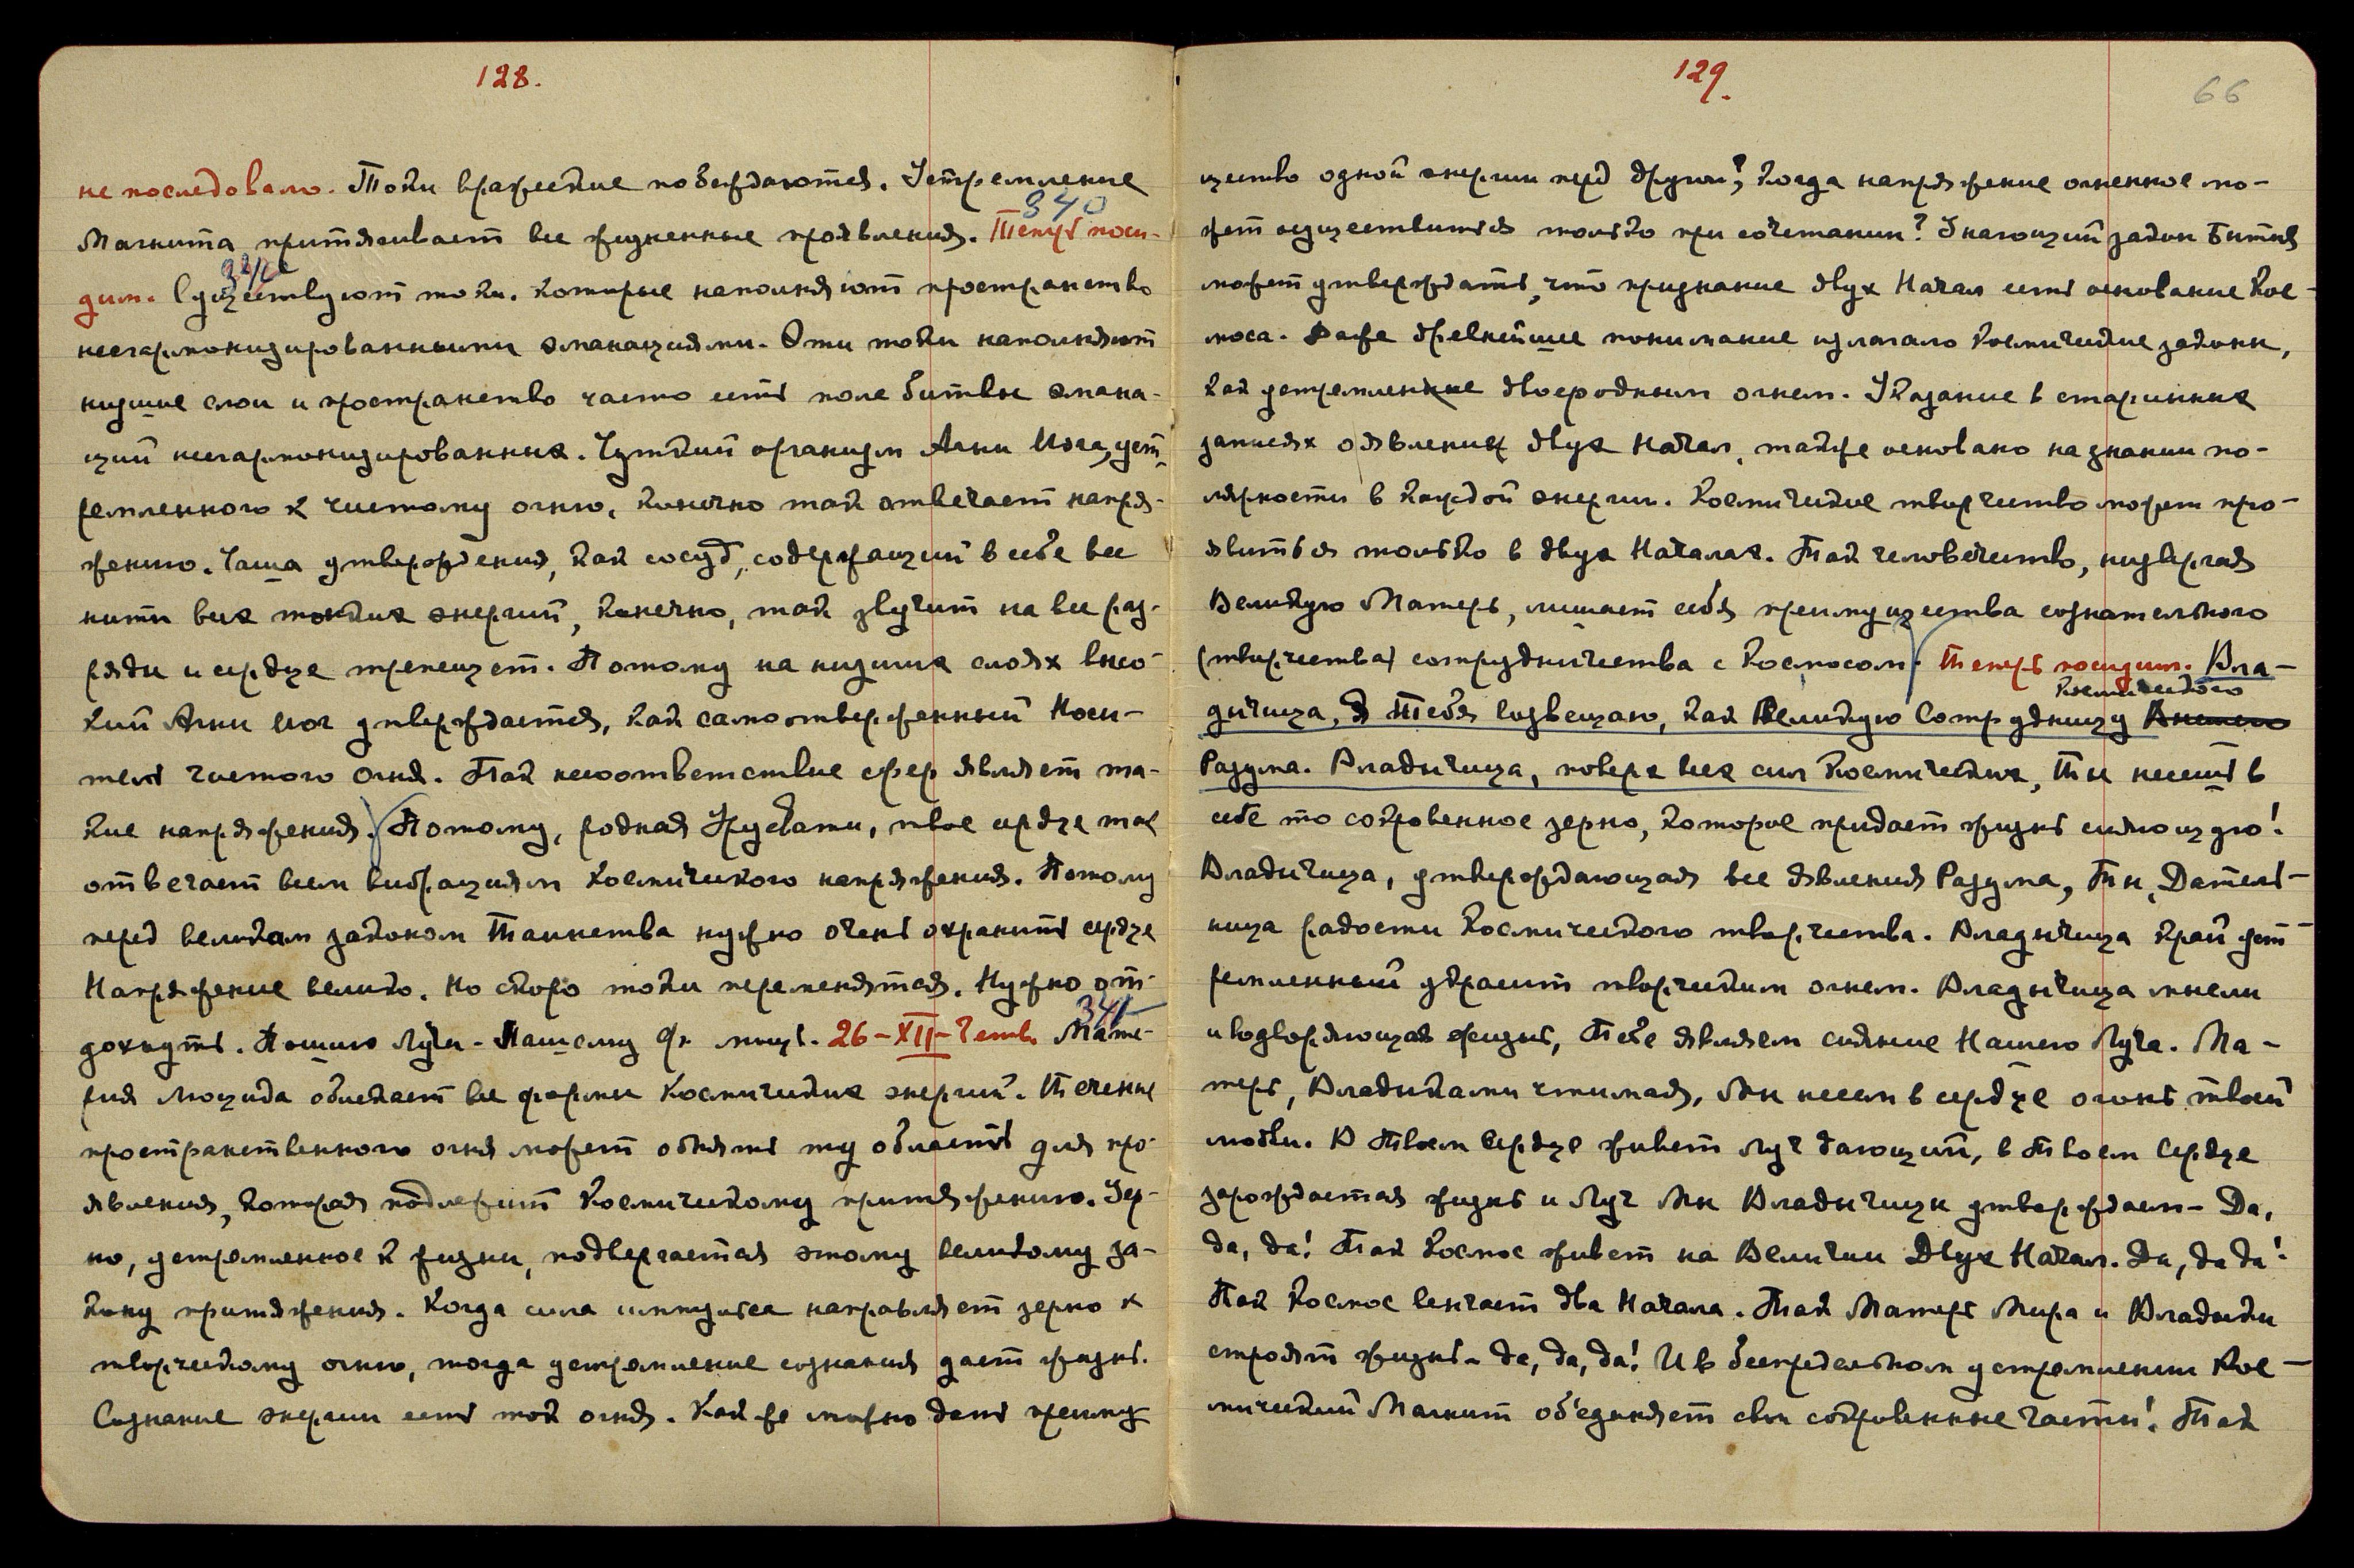 128.
не последовало. Токи вражеские повергаются. Устремление
340
Магнита притягивает все жизненные проявления. Теперь поси-
дим. Существуют токи. которые наполняют пространство
несгармонизированными эманациями. Эти токи наполняют
низшие слои и пространство часто есть поле битвы эмана-
ций несгармонизированных. Чуткий организм Агни Йога, уст
ремленного к чистому огню, конечно так отвечает напря-
жению. Чаша утверждения, как сосуд, содержащий в себе все
нити всех тонких энергий, конечно, так звучит на все раз-
ряды и сердце трепещет. Потому на низших слоях высо-
кий Агни Йог утверждается, как самоотверженный Носи-
тель чистого Огня. Так несоответствие сфер являет та-
кие напряжения. Потому, родная Урусвати, твое сердце так
отвечает всем вибрациям Космического напряжения. Потому
перед великим законом Таинства нужно очень охранить сердце
Напряжение велико. Но скоро токи переменятся. Нужно от-
341
дохнуть. Пошлю Лучи - Нашему Ф. мощь. 26-XII-Четв. Мате-
рия Люцида облекает все формы Космических энергий. Течение
пространственного огня может обнять ту область для про-
явления, которая подлежит Космическому притяжению. Зер-
но, устремленное к жизни, подвергается этому великому за-
кону притяжения. Когда сила импульса направляет зерно к
творческому огню, тогда устремление сознания дает жизнь.
Сознание энергии есть ток огня. Как же можно дать преиму
129.
66
щество одной энергии перед другой, когда напряжение огненное мо-
жет осуществиться только при сочетании? Знающий закон Бытия
может утверждать, что признание двух Начал есть основание Кос-
моса. Даже древнейшее понимание излагало Космические законы,
как устремление двуеродным огнем. Указание в старинных
записях о явлении двух Начал, также основано на знании по-
лярности в каждой энергии. Космическое творчество может про-
явиться только в двух Началах. Так человечество, низвергая
Великую Матерь, лишает себя преимущества сознательного
(творчества) сотрудничества с Космосом. Теперь посидим. Вла-
Космического
дычица, Я Тебя возвещаю, как Великую Сотрудницу
Разума. Владычица, поверх всех сил Космических, Ты несешь в
себе то сокровенное зерно, которое придает жизнь сияющую!
Владычица, утверждающая все явления Разума, Ты, Датель-
ница радости Космического творчества. Владычица край уст
ремленный украсит творческим огнем. Владычица мысли
и водворяющая жизнь, Тебе являем сияние Нашего Луча. Ма-
терь, Владыками чтимая, Мы несем в сердце огонь твоей
любви. В Твоем Сердце живет луч дающий, в Твоем Сердце
зарождается жизнь и Луч Мы Владычицы утверждаем - Да,
да, да! Так Космос живет на Величии Двух Начал. Да, да да!
Так Космос венчает два Начала. Так Матерь Мира и Владыки
строят жизнь - да, да, да! И в беспредельном устремлении Кос-
мический Магнит объединяет свои сокровенные части! Так